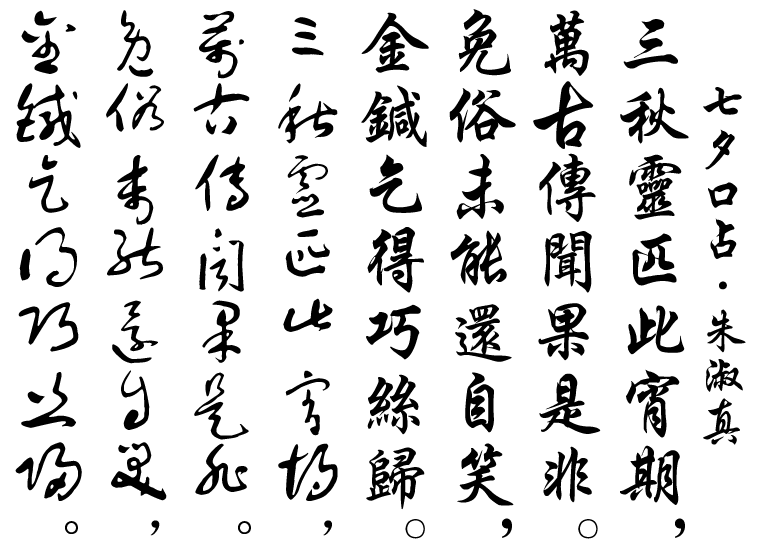 七夕口占·朱淑真
三秋靈匹此宵期，
萬古傳聞果是非○
免俗未能還自笑，
金鍼乞得巧絲歸○
三秋靈匹此宵期，
萬古傳聞果是非。
免俗未能還自笑，
金鍼乞得巧絲歸。